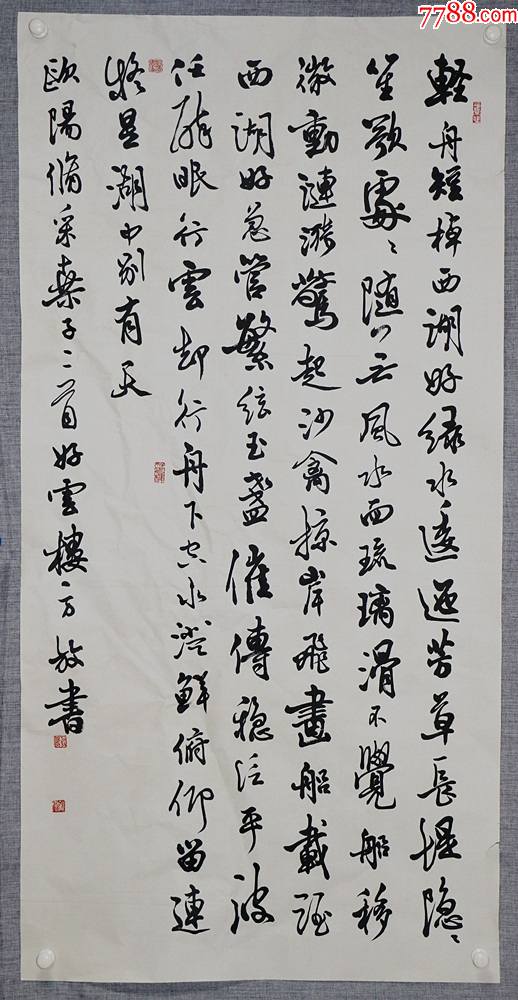 7788.com
輕舟短棹西湖好綠水逶迤芳草長堤隐〻
笙歌處〻随無風水面琉璃滑不覺船移
微動漣漪驚起沙禽掠岸飛畫船載酒
西湖好急管繁絃玉盞催傳穩泛平波
任醉眠行雲却行舟下空水澄鮮俯仰留連
疑是湖中别有天
歐陽脩采桑子二首好雲樓方放書